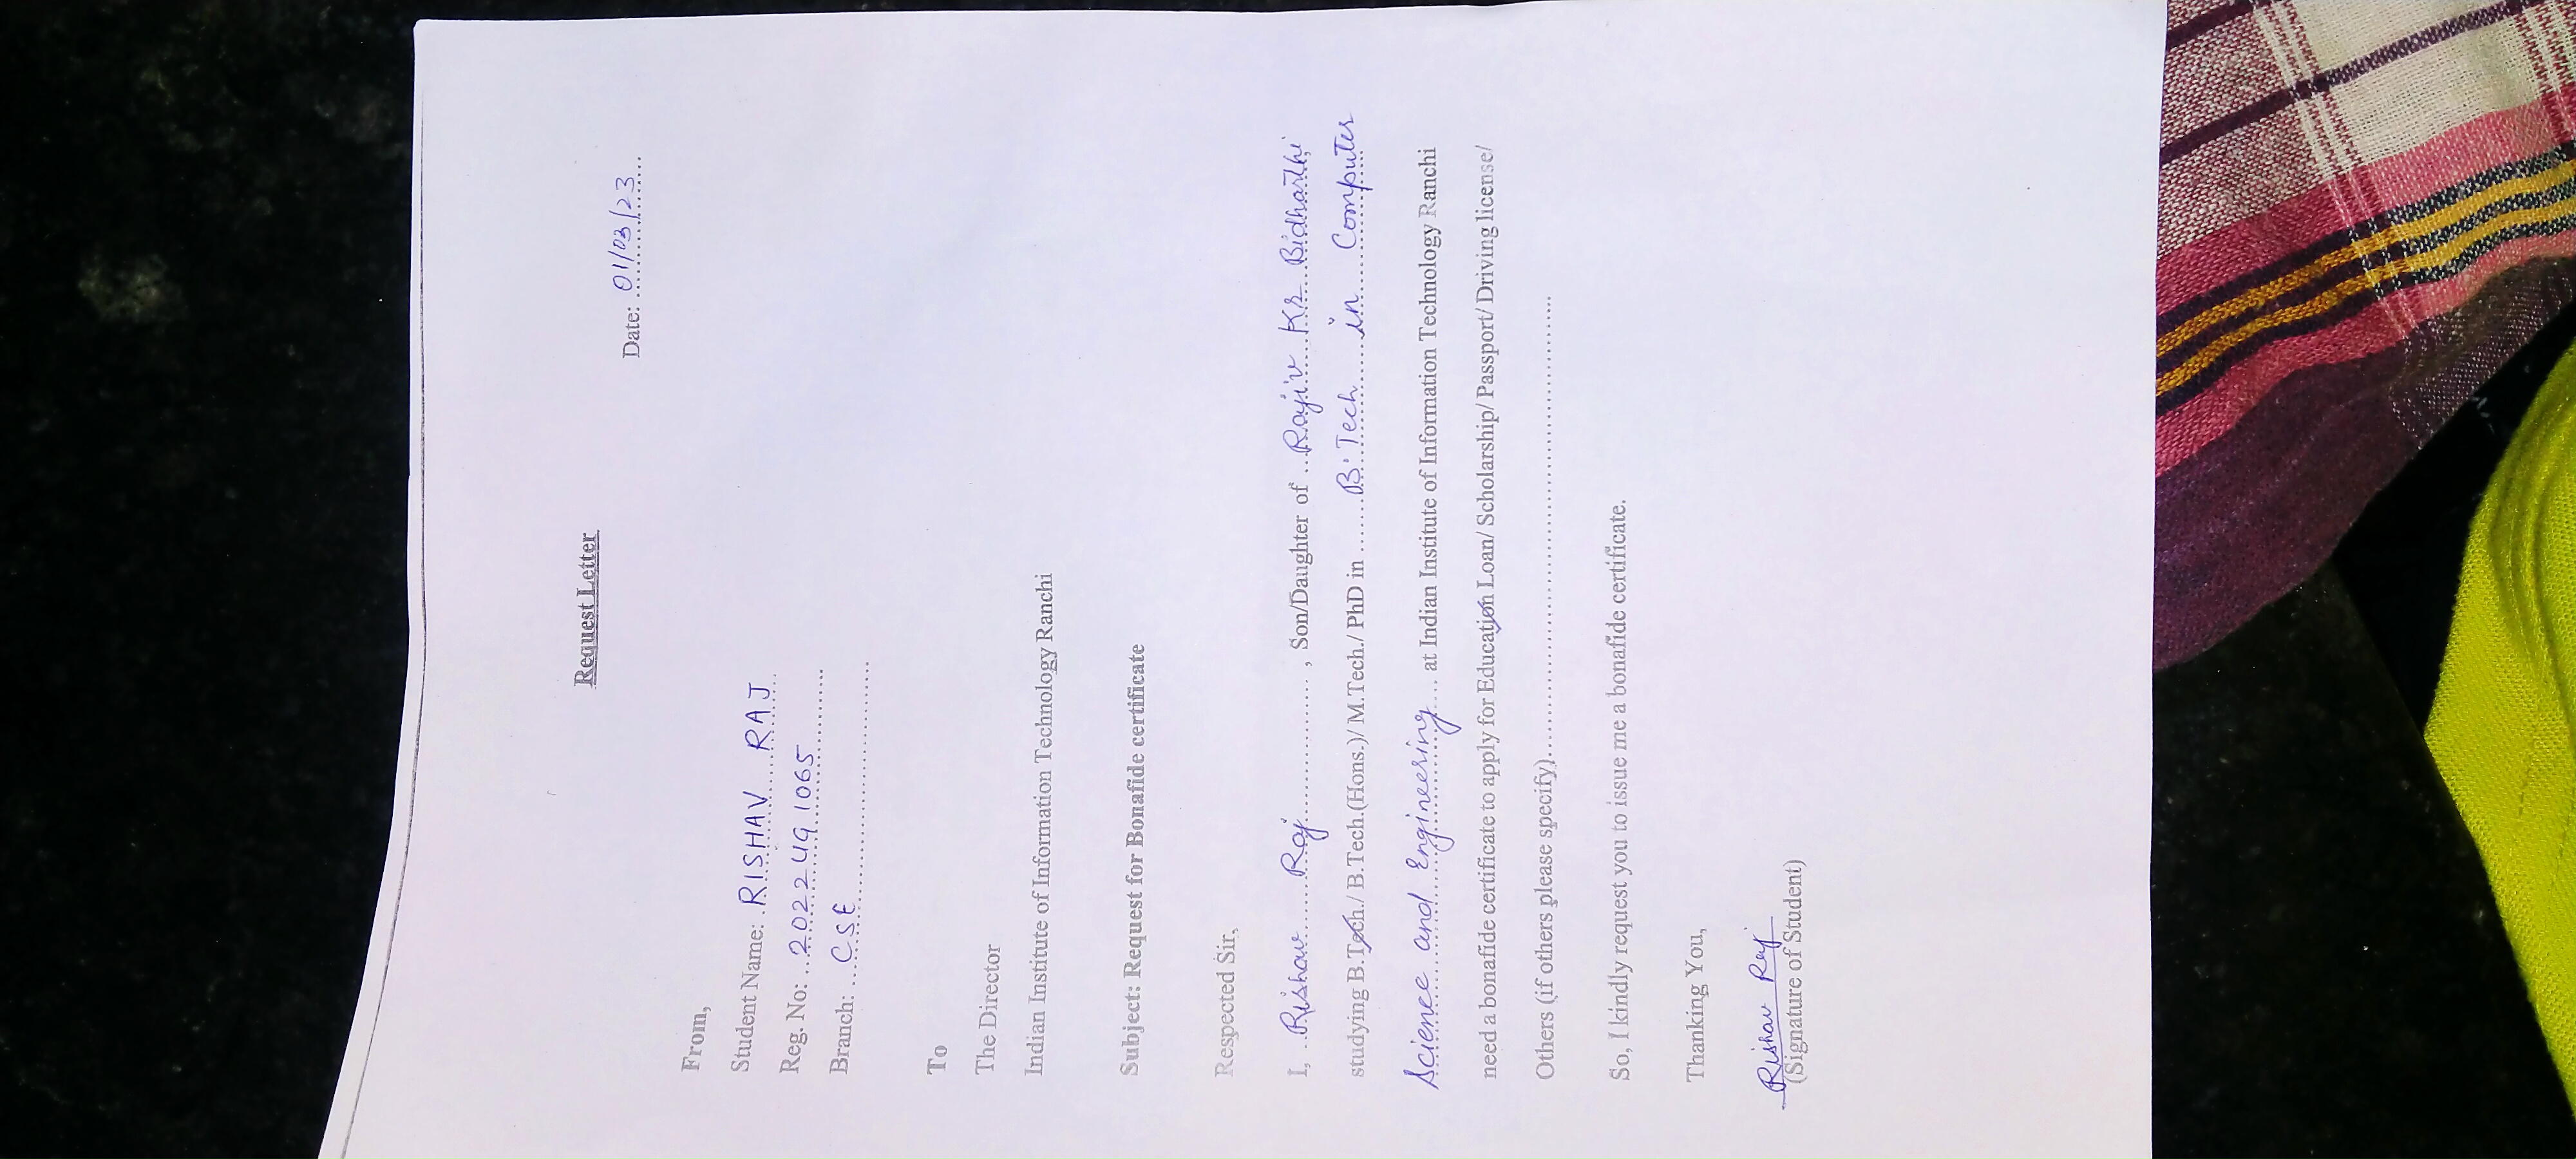 Request Letter
Date: 01/03/23
From,
Student Name: RISHAV RAJ
Reg. No: 2022UG1065
Branch: CSE
To
The Director
Indian Institute of Information Technology Ranchi
Subject: Request for Bonafide certificate
Respected Sir,
I, Rishav Raj , Son/Daughter of Rajiv Kr Bidharthi
studying B.Tech./ B.Tech.(Hons.)/ M.Tech./ PhD in B.Tech in Computer
Science and Engineering at Indian Institute of Information Technology Ranchi
need a bonafide certificate to apply for Education Loan/ Scholarship/ Passport/ Driving license/
Others (if others please specify)..........................................................
So, I kindly request you to issue me a bonafide certificate.
Thanking You,
Rishav Raj
(Signature of Student)